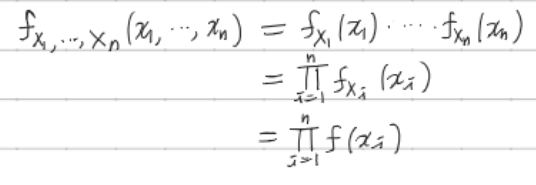 f_{X_1, ..., X_n}(x_1, ..., x_n) = f_{X_1}(x_1) ····· f_{X_n}(x_n)
= \prod_{i=1}^{n} f_{X_i}(x_i)
= \prod_{i=1}^{n} f(x_i)